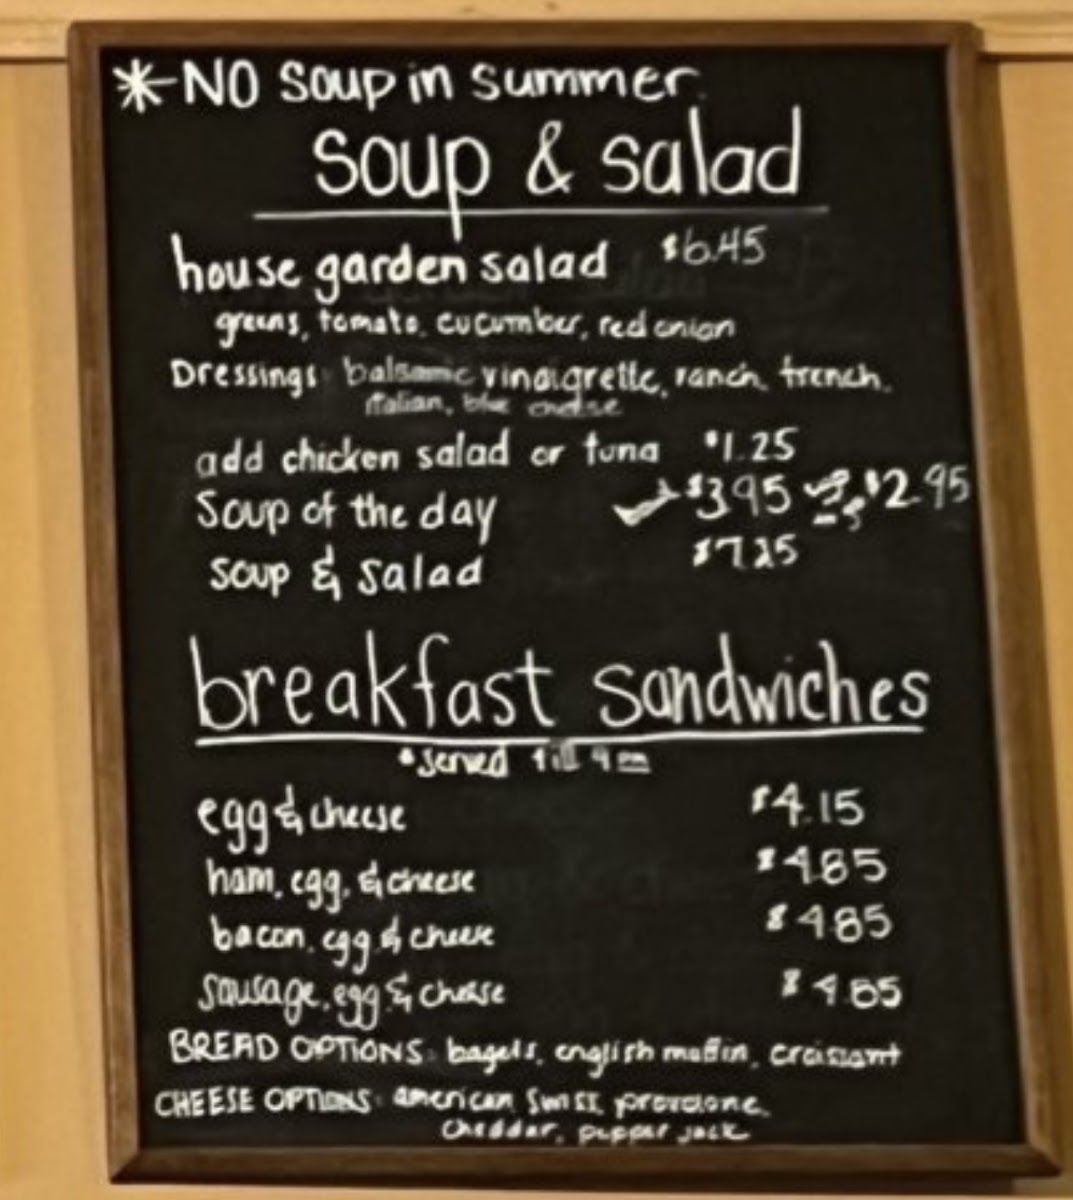 *NO Soup in summer
Soup & Salad
house garden salad $6.45
greens, tomato, cucumber, red onion
Dressings: balsamic vinaigrette, ranch, french,
italian, blue cheese
add chicken salad or tuna $1.25
Soup of the day $3.95 $2.95
Soup & Salad $7.25
breakfast sandwiches
*served till 4 pm
egg & cheese $4.15
ham, egg, & cheese $4.85
bacon, egg & cheese $4.85
sausage, egg & cheese $4.85
BREAD OPTIONS: bagels, english muffin, croissant
CHEESE OPTIONS: american, swiss, provolone,
cheddar, pepper jack